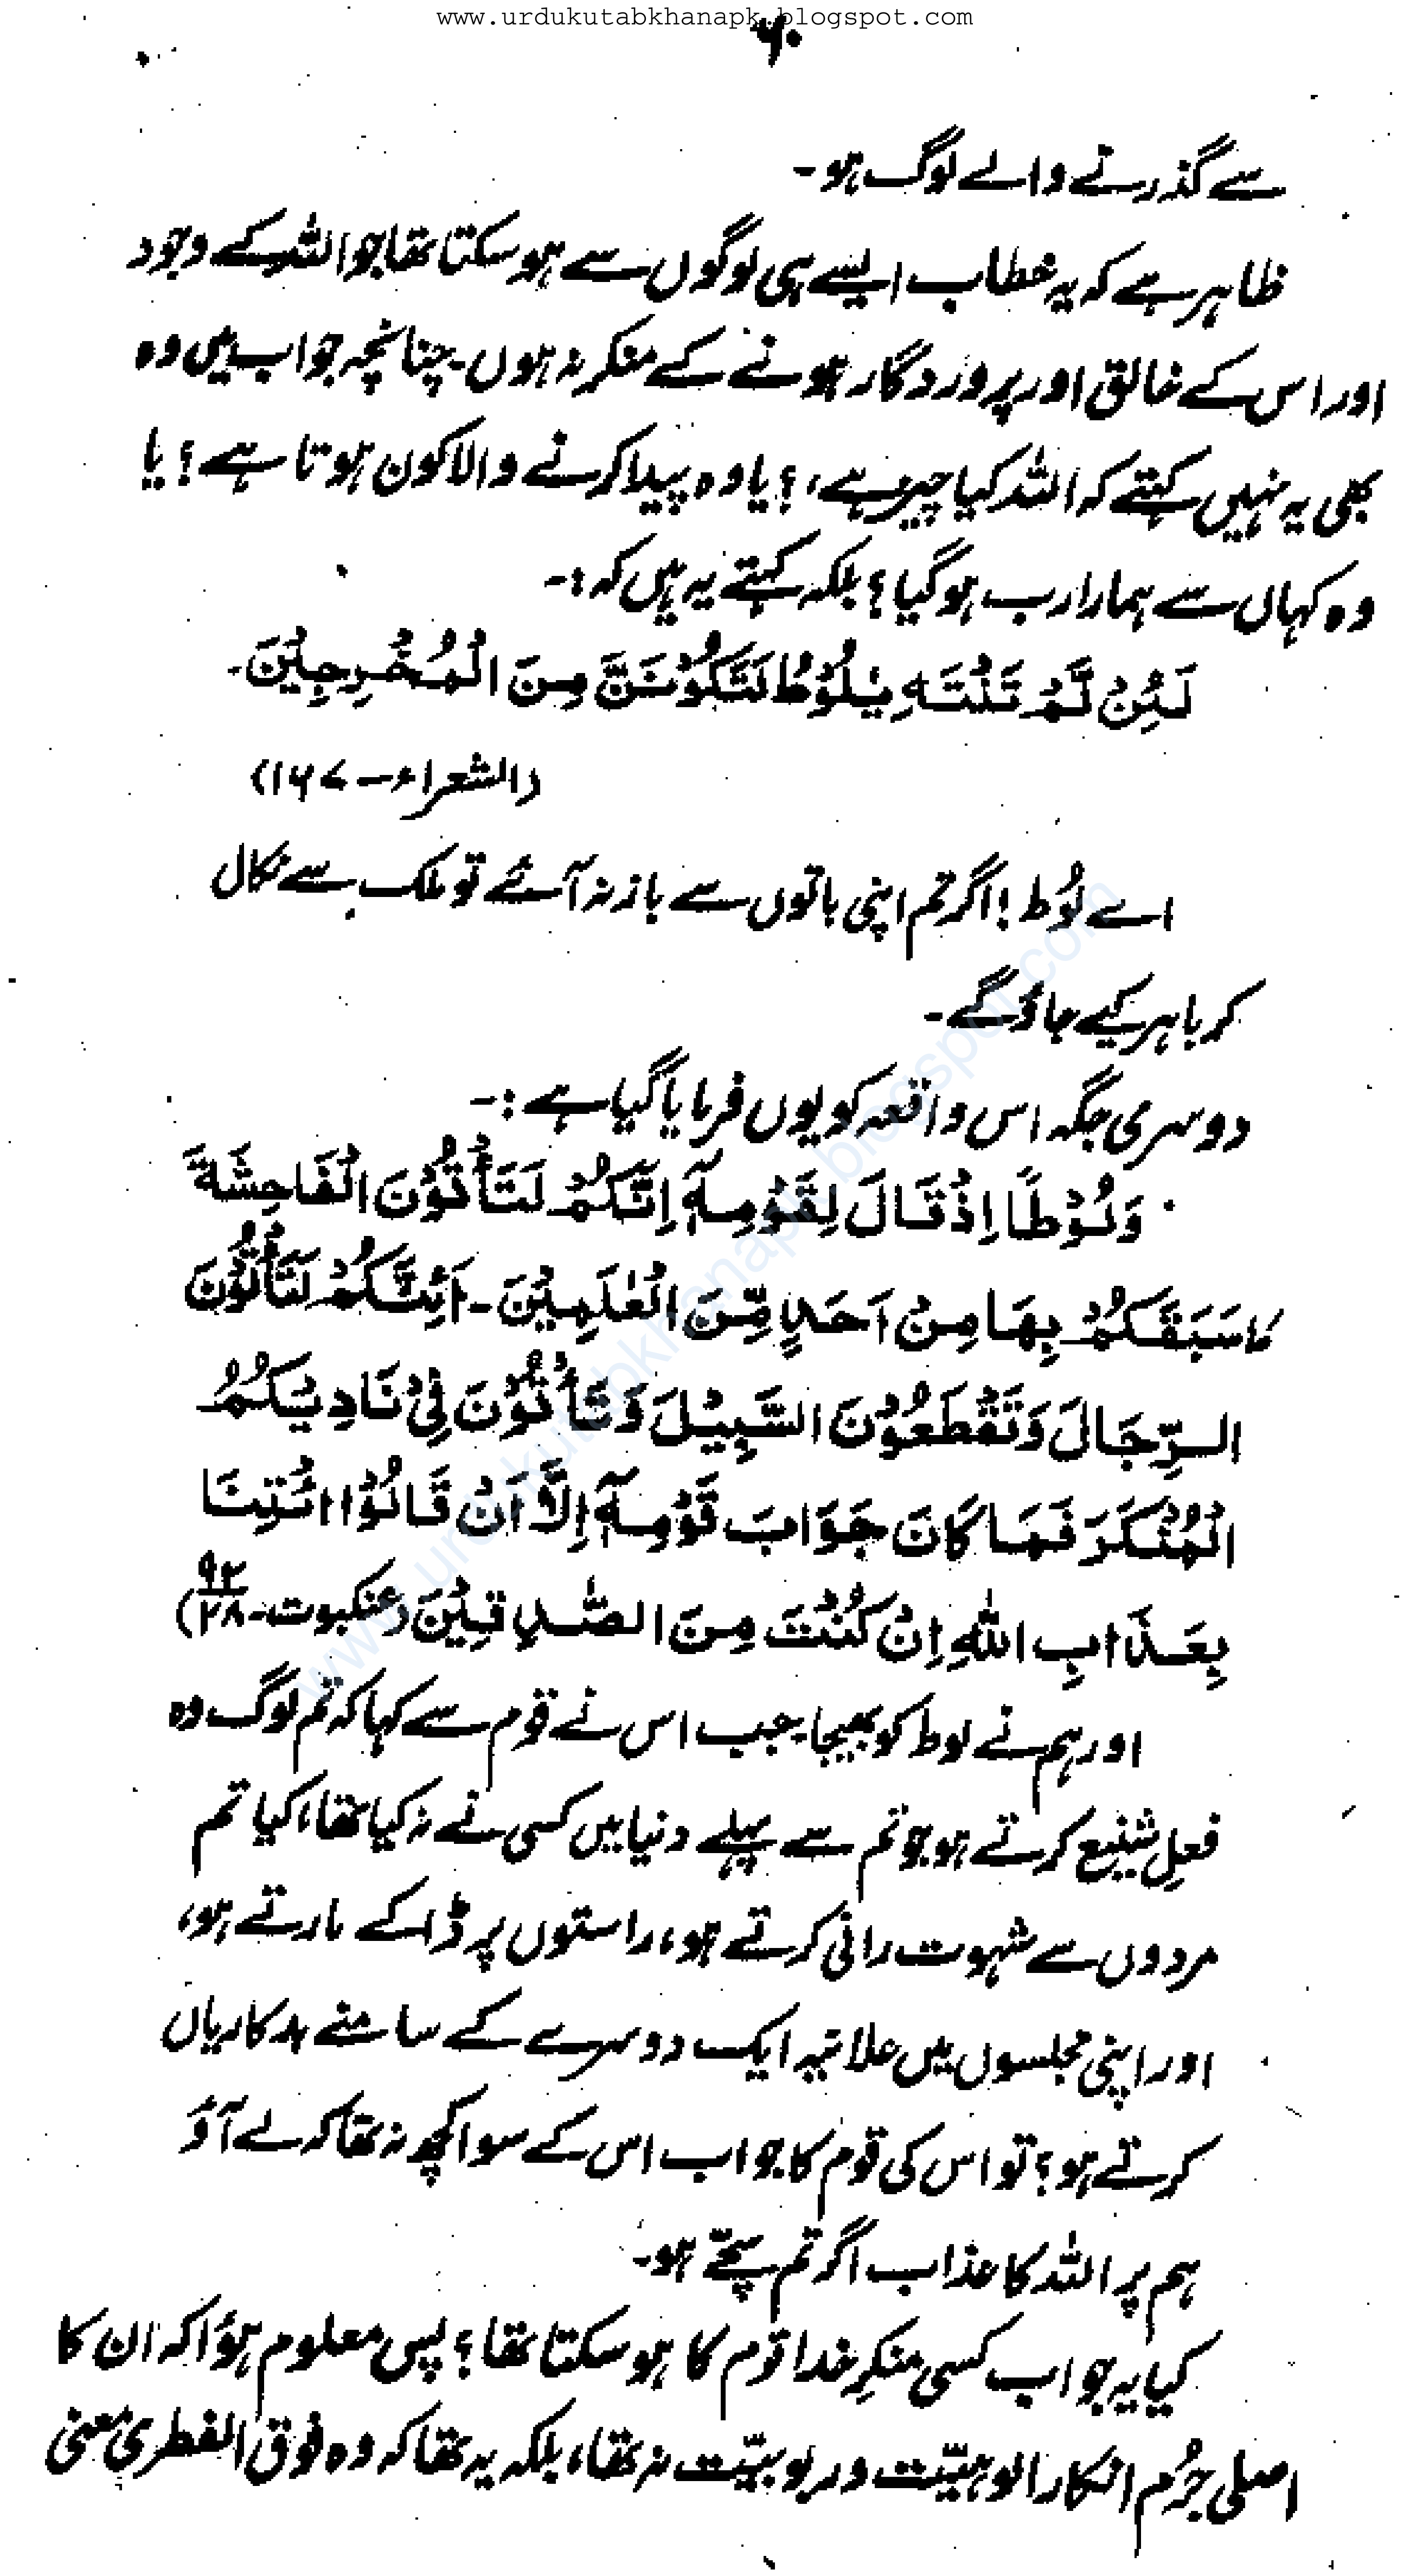 www.urdukutabkhanapk.blogspot.com
۶۰
سے گذرنے والے لوگ ہو۔
ظاہر ہے کہ یہ خطاب ایسے ہی لوگوں سے ہوسکتا تھا جو اللہ کے وجود
اور اس کے خالق اور پروردگار ہونے کے منکر نہ ہوں۔ چنانچہ جواب میں وہ
بھی یہ نہیں کہتے کہ اللہ کیا چیز ہے، ؟ یا وہ پیدا کرنے والا کون ہوتا ہے؟ یا
وہ کہاں سے ہمارا رب ہوگیا؟ بلکہ کہتے یہ ہیں کہ :-
لَئِنْ لَّمْ تَنْتَهِ يٰلُوْطُ لَتَكُوْنَنَّ مِنَ الْمُخْرَجِيْنَ۔
(الشعراء - ۱۶۷)
اے لُوط! اگر تم اپنی باتوں سے باز نہ آئے تو ملک سے نکال
کر باہر کیے جاؤ گے۔
دوسری جگہ اس واقعہ کو یوں فرمایا گیا ہے :-
وَلُوْطًا اِذْ قَالَ لِقَوْمِهٖٓ اِنَّكُمْ لَتَأْتُوْنَ الْفَاحِشَةَ
مَا سَبَقَكُمْ بِهَا مِنْ اَحَدٍ مِّنَ الْعٰلَمِيْنَ۔ اَئِنَّكُمْ لَتَأْتُوْنَ
الرِّجَالَ وَتَقْطَعُوْنَ السَّبِيْلَ وَتَأْتُوْنَ فِيْ نَادِيْكُمُ
الْمُنْكَرَ فَمَا كَانَ جَوَابَ قَوْمِهٖٓ اِلَّآ اَنْ قَالُوا ائْتِنَا
بِعَذَابِ اللّٰهِ اِنْ كُنْتَ مِنَ الصّٰدِقِيْنَ (عنکبوت - ۲۸)
اور ہم نے لوط کو بھیجا۔ جب اس نے قوم سے کہا کہ تم لوگ وہ
فعلِ شنیع کرتے ہو جو تم سے پہلے دنیا میں کسی نے نہ کیا تھا، کیا تم
مردوں سے شہوت رانی کرتے ہو، راستوں پر ڈاکے مارتے ہو،
اور اپنی مجلسوں میں علانیہ ایک دوسرے کے سامنے بدکاریاں
کرتے ہو؟ تو اس کی قوم کا جواب اس کے سوا کچھ نہ تھا کہ لے آؤ
ہم پر اللہ کا عذاب اگر تم سچّے ہو۔
کیا یہ جواب کسی منکرِ خدا قوم کا ہوسکتا تھا؟ پس معلوم ہؤا کہ ان کا
اصلی جُرم انکار الوہیّت و ربوبیّت نہ تھا، بلکہ یہ تھا کہ وہ فوق الفطری معنی
www.urdukutabkhanapk.blogspot.com